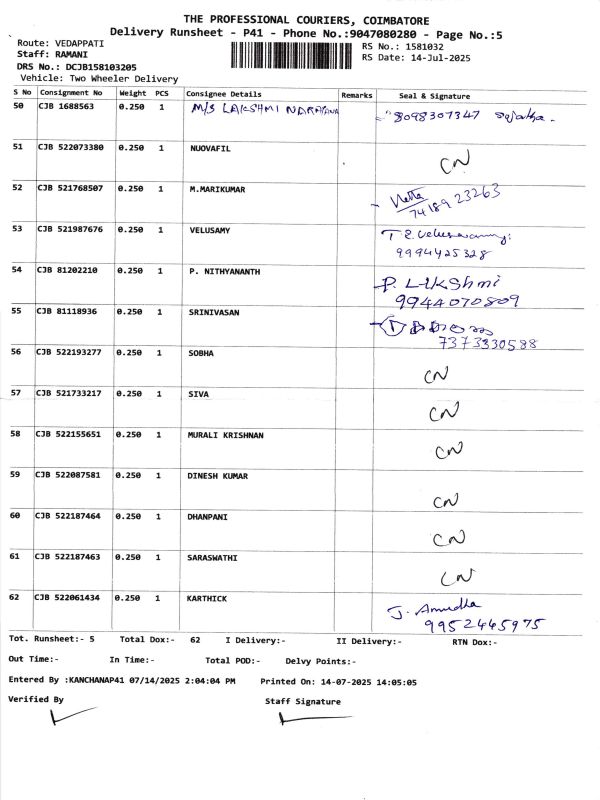 THE PROFESSIONAL COURIERS, COIMBATORE
Delivery Runsheet - P41 - Phone No.:9047080280 - Page No.:5
Route: VEDAPPATI
Staff: RAMANI
DRS No.: DCJB158103205
Vehicle: Two Wheeler Delivery
RS No.: 1581032
RS Date: 14-Jul-2025
S No Consignment No Weight PCS Consignee Details Remarks Seal & Signature
50 CJB 1688563 0.250 1 M/S LAKSHMI NARAYANA 8098307347
51 CJB 522073380 0.250 1 NUOVAFIL CN
52 CJB 521768507 0.250 1 M.MARIKUMAR
74189 23263
53 CJB 521987676 0.250 1 VELUSAMY
9994425328
54 CJB 81202210 0.250 1 P. NITHYANANTH P. LIKShmi
9944070809
55 CJB 81118936 0.250 1 SRINIVASAN
7373330588
56 CJB 522193277 0.250 1 SOBHA CN
57 CJB 521733217 0.250 1 SIVA CN
58 CJB 522155651 0.250 1 MURALI KRISHNAN CN
59 CJB 522087581 0.250 1 DINESH KUMAR CN
60 CJB 522187464 0.250 1 DHANPANI CN
61 CJB 522187463 0.250 1 SARASWATHI CN
62 CJB 522061434 0.250 1 KARTHICK J. Anudha
9952445975
Tot. Runsheet:- 5 Total Dox:- 62 I Delivery:- II Delivery:- RTN Dox:-
Out Time:- In Time:- Total POD:- Delvy Points:-
Entered By :KANCHANAP41 07/14/2025 2:04:04 PM Printed On: 14-07-2025 14:05:05
Verified By Staff Signature